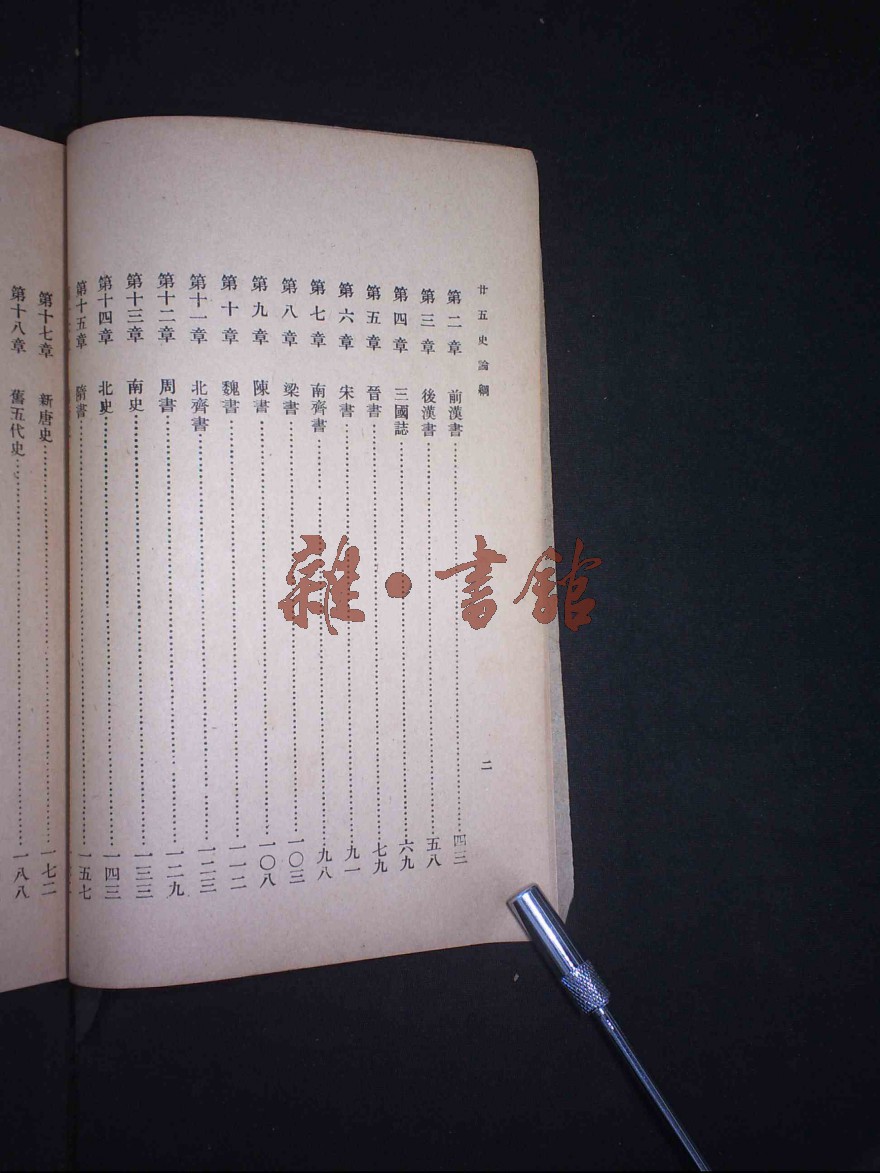 廿五史論綱
二
第二章 前漢書 四三
第三章 後漢書 五八
第四章 三國誌 六九
第五章 晉書 七九
第六章 宋書 九一
第七章 南齊書 九八
第八章 梁書 一〇三
第九章 陳書 一〇八
第十章 魏書 一一二
第十一章 北齊書 一二三
第十二章 周書 一二九
第十三章 南史 一三三
第十四章 北史 一四三
第十五章 隋書 一五七
第十七章 新唐史 一七二
第十八章 舊五代史 一八八
雜·書館